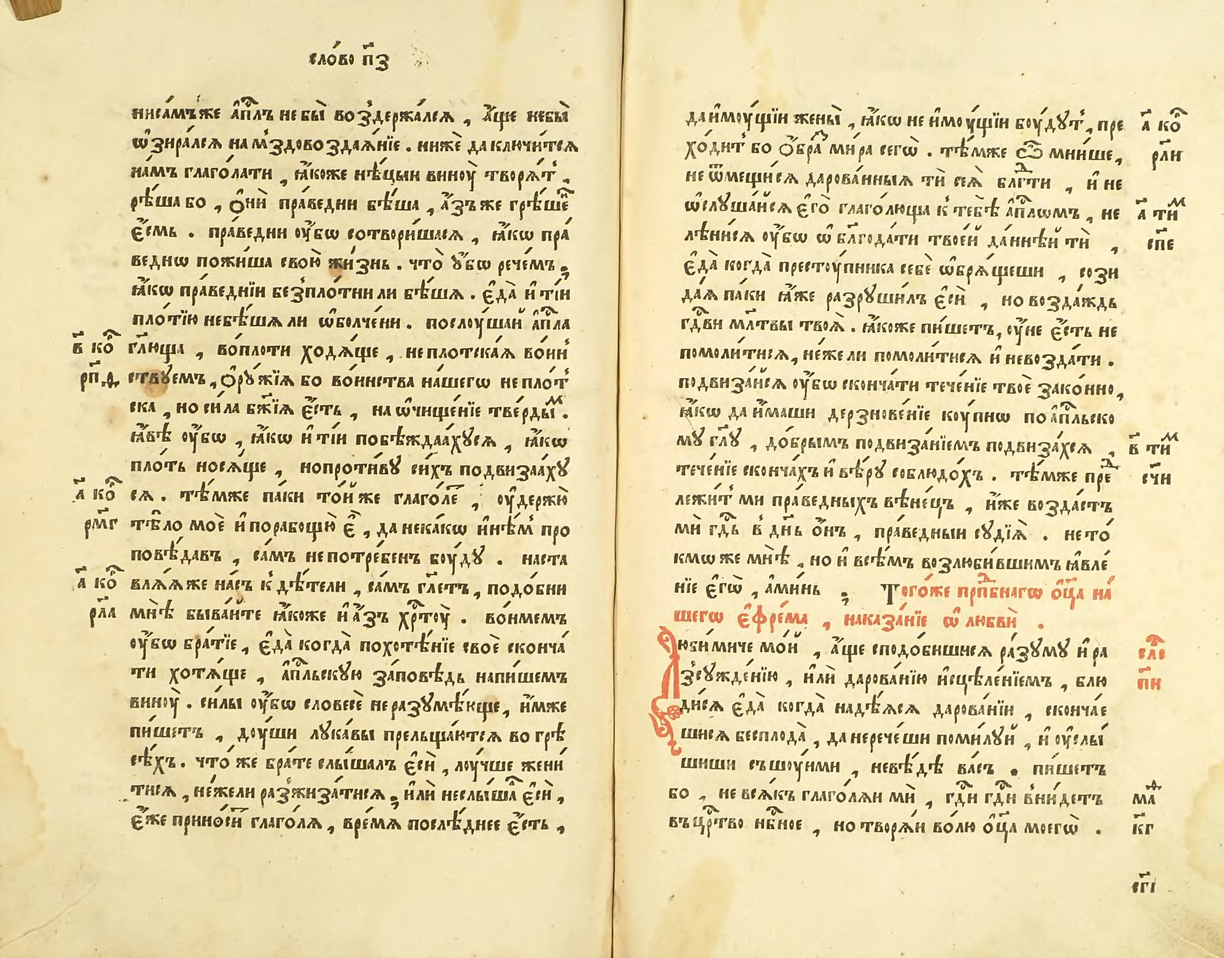 сло́во п҃з
ниса́мъже а҆пⷭ҇лъ не бы̀ во здержа́лся , а҆́ще небы̀
ѡ҆зира́лся на мздовоздая́нїе . ниже́ да ключи́тся
на́мъ глаго́лати , ꙗ҆́коже нѣ́цыи винꙋ̀ творя́т ,
рѣ́ша бо , ѻ҆нѝ пра́ведни бѣ́ша , а҆́зъ же грѣ́шеⷩ
є҆́смь . пра́ведни ᲂу҆́бѡ сотвори́шася , ꙗ҆́кѡ пра́
веднѡ пожи́ша свою̀ жи́знь . что̀ ᲂу҆́бѡ рече́мъ ,
ꙗ҆́кѡ пра́веднїи безпло́тни ли бѣ́шѧ . є҆да̀ и҆ ті́и
пло́тїю небѣ́шѧ ли ѡ҆болче́ни . послꙋ́шай а҆пⷭ҇ла
в҃ коⷬ҇ гл҃юща , воплоти ходѧ́ще , неплотска́ѧ во́ин
рп҃д ствꙋемъ , ѻ҆рꙋ́жїѧ бо во́инства на́шегѡ непло́т
ска , но си́ла бж҃їѧ є҆́сть , на ѡ҆чище́нїе тве́рдыⷨ .
ꙗ҆́вѣ ᲂу҆́бѡ , ꙗ҆́кѡ и҆ ті́и побѣжда́ахꙋся , ꙗ҆́кѡ
пло́ть нося́ще , нопроти́вꙋ си́хъ подвиза́ахꙋ
а҃ коⷬ҇ ся . тѣ́мже па́ки то́й же глаго́ле , ᲂу҆держꙋ̀
рм҃г тѣ́ло моѐ и҆ порабощꙋ̀ є҆̀ , да нека́кѡ и҆нѣ́м про
повѣ́давъ , са́мъ непотре́бенъ бꙋ́дꙋ . наста
а҃ коⷬ҇ вля́я же на́съ к дѣ́тели , са́мъ гл҃етъ , подо́бни
рл҃а мнѣ̀ быва́йте ꙗ҆́коже и҆ а҆́зъ хрⷭ҇тꙋ̀ . во́нмемъ
ᲂу҆́бѡ бра́тїе , є҆да̀ когда̀ похотѣ́нїе своѐ сконча́
ти хотя́ще , а҆пⷭ҇льскꙋю за́повѣдь напи́шемъ
винꙋ̀ . си́лы ᲂу҆́бѡ словесѐ неразꙋмѣ́юще , и҆́мже
пи́шетъ , дꙋ́ши лꙋка́вы прельща́ются во грѣ
сѣ́хъ . что́ же бра́те слы́шалъ є҆сѝ , лꙋ́чше жени́
тися , не́жели разжиза́тися , и҆лѝ неслы́шаⷧ є҆сѝ ,
є҆́же прино́си глаго́ля , вре́мя послѣ́днее є҆́сть ,
да и҆мꙋ́щїи жены̀ , ꙗ҆́кѡ не и҆мꙋ́щїи бꙋ́дꙋт , пре а҃ коⷬ҇
хо́дит бо ѻ҆́браⷥ ми́ра сегѡ̀ . тѣ́мже ѽ мни́ше , рл҃и
не ѿмещи́ся дарова́нныя тѝ сея̀ блгⷣти , и҆ не
ѡ҆слꙋ́шайся є҆го̀ глаго́люща к тебѣ̀ а҆пⷭ҇лѡмъ , не а҃ тиⷨ
лѣни́ся ᲂу҆́бѡ ѡ҆ блгода́ти твое́й да́ннѣй тѝ , сп҃е
є҆да̀ когда̀ престꙋ́пника себѐ ѡ҆бря́щеши , сози
да́я па́ки ꙗ҆́же разрꙋши́лъ є҆сѝ , но возда́ждь
гдⷭ҇ви мл҃твы твоя̀ . ꙗ҆́коже пи́шет , ᲂу҆́не є҆́сть не
помоли́тися , не́же ли помоли́тися и҆ невозда́ти .
подвиза́йся ᲂу҆́бѡ сконча́ти тече́нїе твоѐ зако́нно ,
ꙗ҆́кѡ да и҆́маши дерзнове́нїе кꙋ́пнѡ по а҆пⷭ҇льско
мꙋ гл҃ꙋ , до́брымъ подвиза́нїемъ подвиза́хся , в҃ тиⷨ
тече́нїе сконча́хъ и҆ вѣ́рꙋ соблюдо́хъ . тѣ́мже преⷣ сч҃и
лежи́т ми пра́ведныхъ вѣне́цъ , и҆́же возда́стъ
мѝ гдⷭ҇ь в днь ѻ҆́нъ , пра́ведныи сꙋдїя̀ . не то́
кмѡ же мнѣ̀ , но и҆ всѣ́мъ возлюби́вшимъ ꙗ҆вле́
нїе є҆гѡ̀ , а҆ми́нь . Того́же прпⷣбнагѡ ѻ҆ц҃а на́
шегѡ є҆фре́ма , наказа́нїе ѡ҆ любвѝ .
Люби́миче мо́й , а҆́ще сподо́бишися ра́зꙋмꙋ и҆ ра сло́
зсꙋжде́нїю , и҆лѝ дарова́нїю и҆сцѣле́нїемъ , блю п҃и
ди́ся є҆да̀ когда̀ надѣ́яся дарова́нїи , сконча́е
шися бесплода̀ , да нерече́ши поми́лꙋй , и҆ ᲂу҆слы́
шиши съшꙋ́ими , невѣ́дѣ ва́съ . пи́шетъ
бо , не вся́къ глаго́ляи мѝ , гдⷭ҇и гдⷭ҇и вни́детъ маⷴ
въ црⷭ҇тво нбⷭ҇ное , но творя́и во́лю ѻ҆ц҃а моегѡ̀ . к҃г
сг҃і